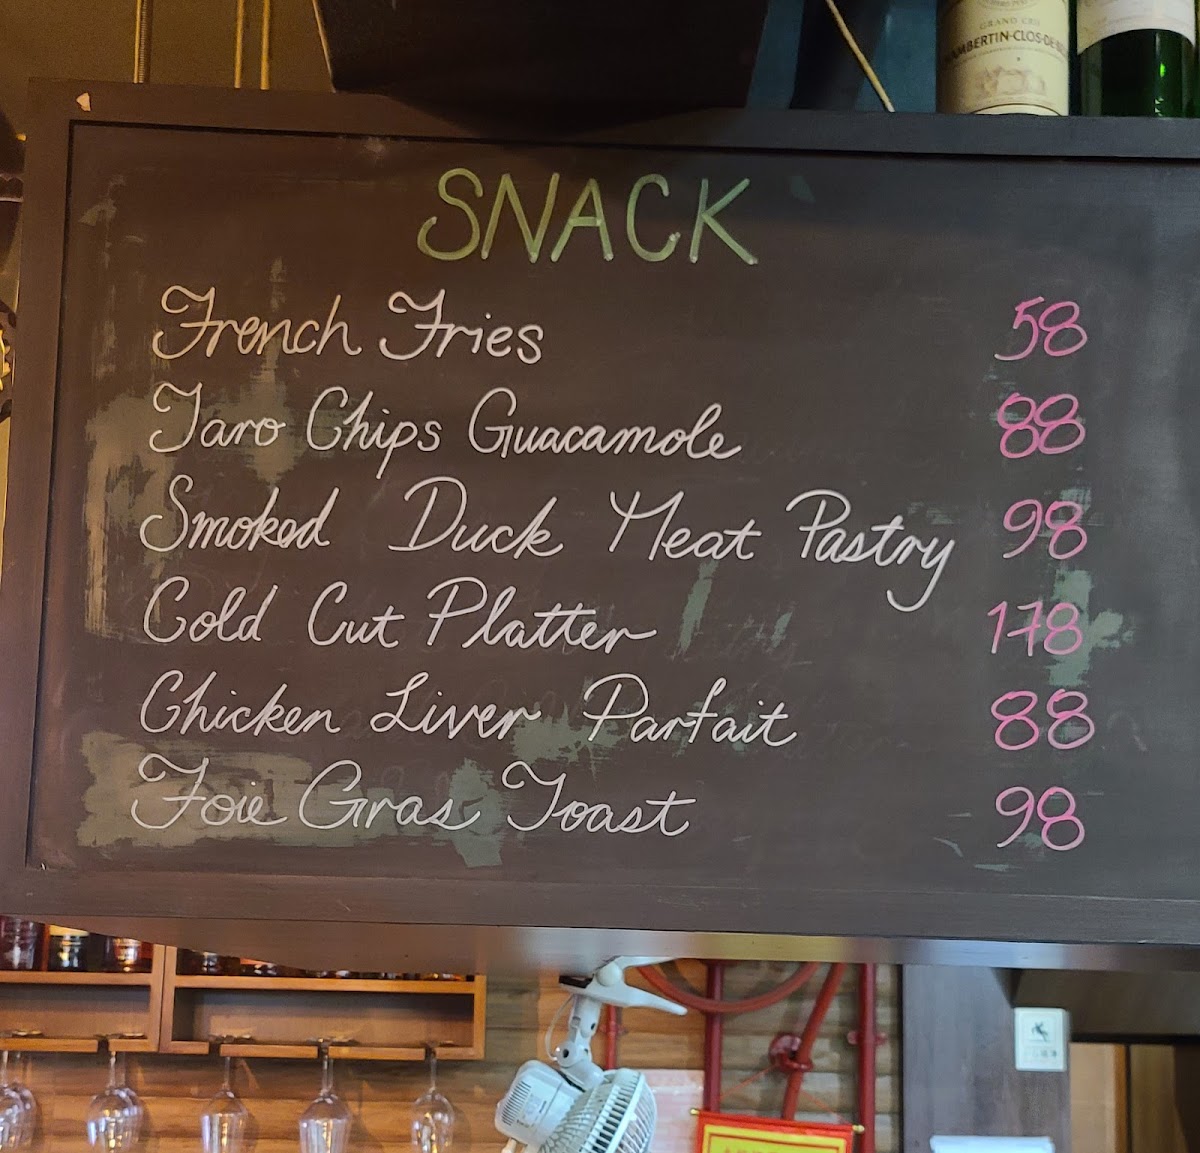 GRAND CRU
SNACK
French Fries 58
Taro Chips Guacamole 88
Smoked Duck Meat Pastry 98
Cold Cut Platter 178
Chicken Liver Parfait 88
Foie Gras Toast 98